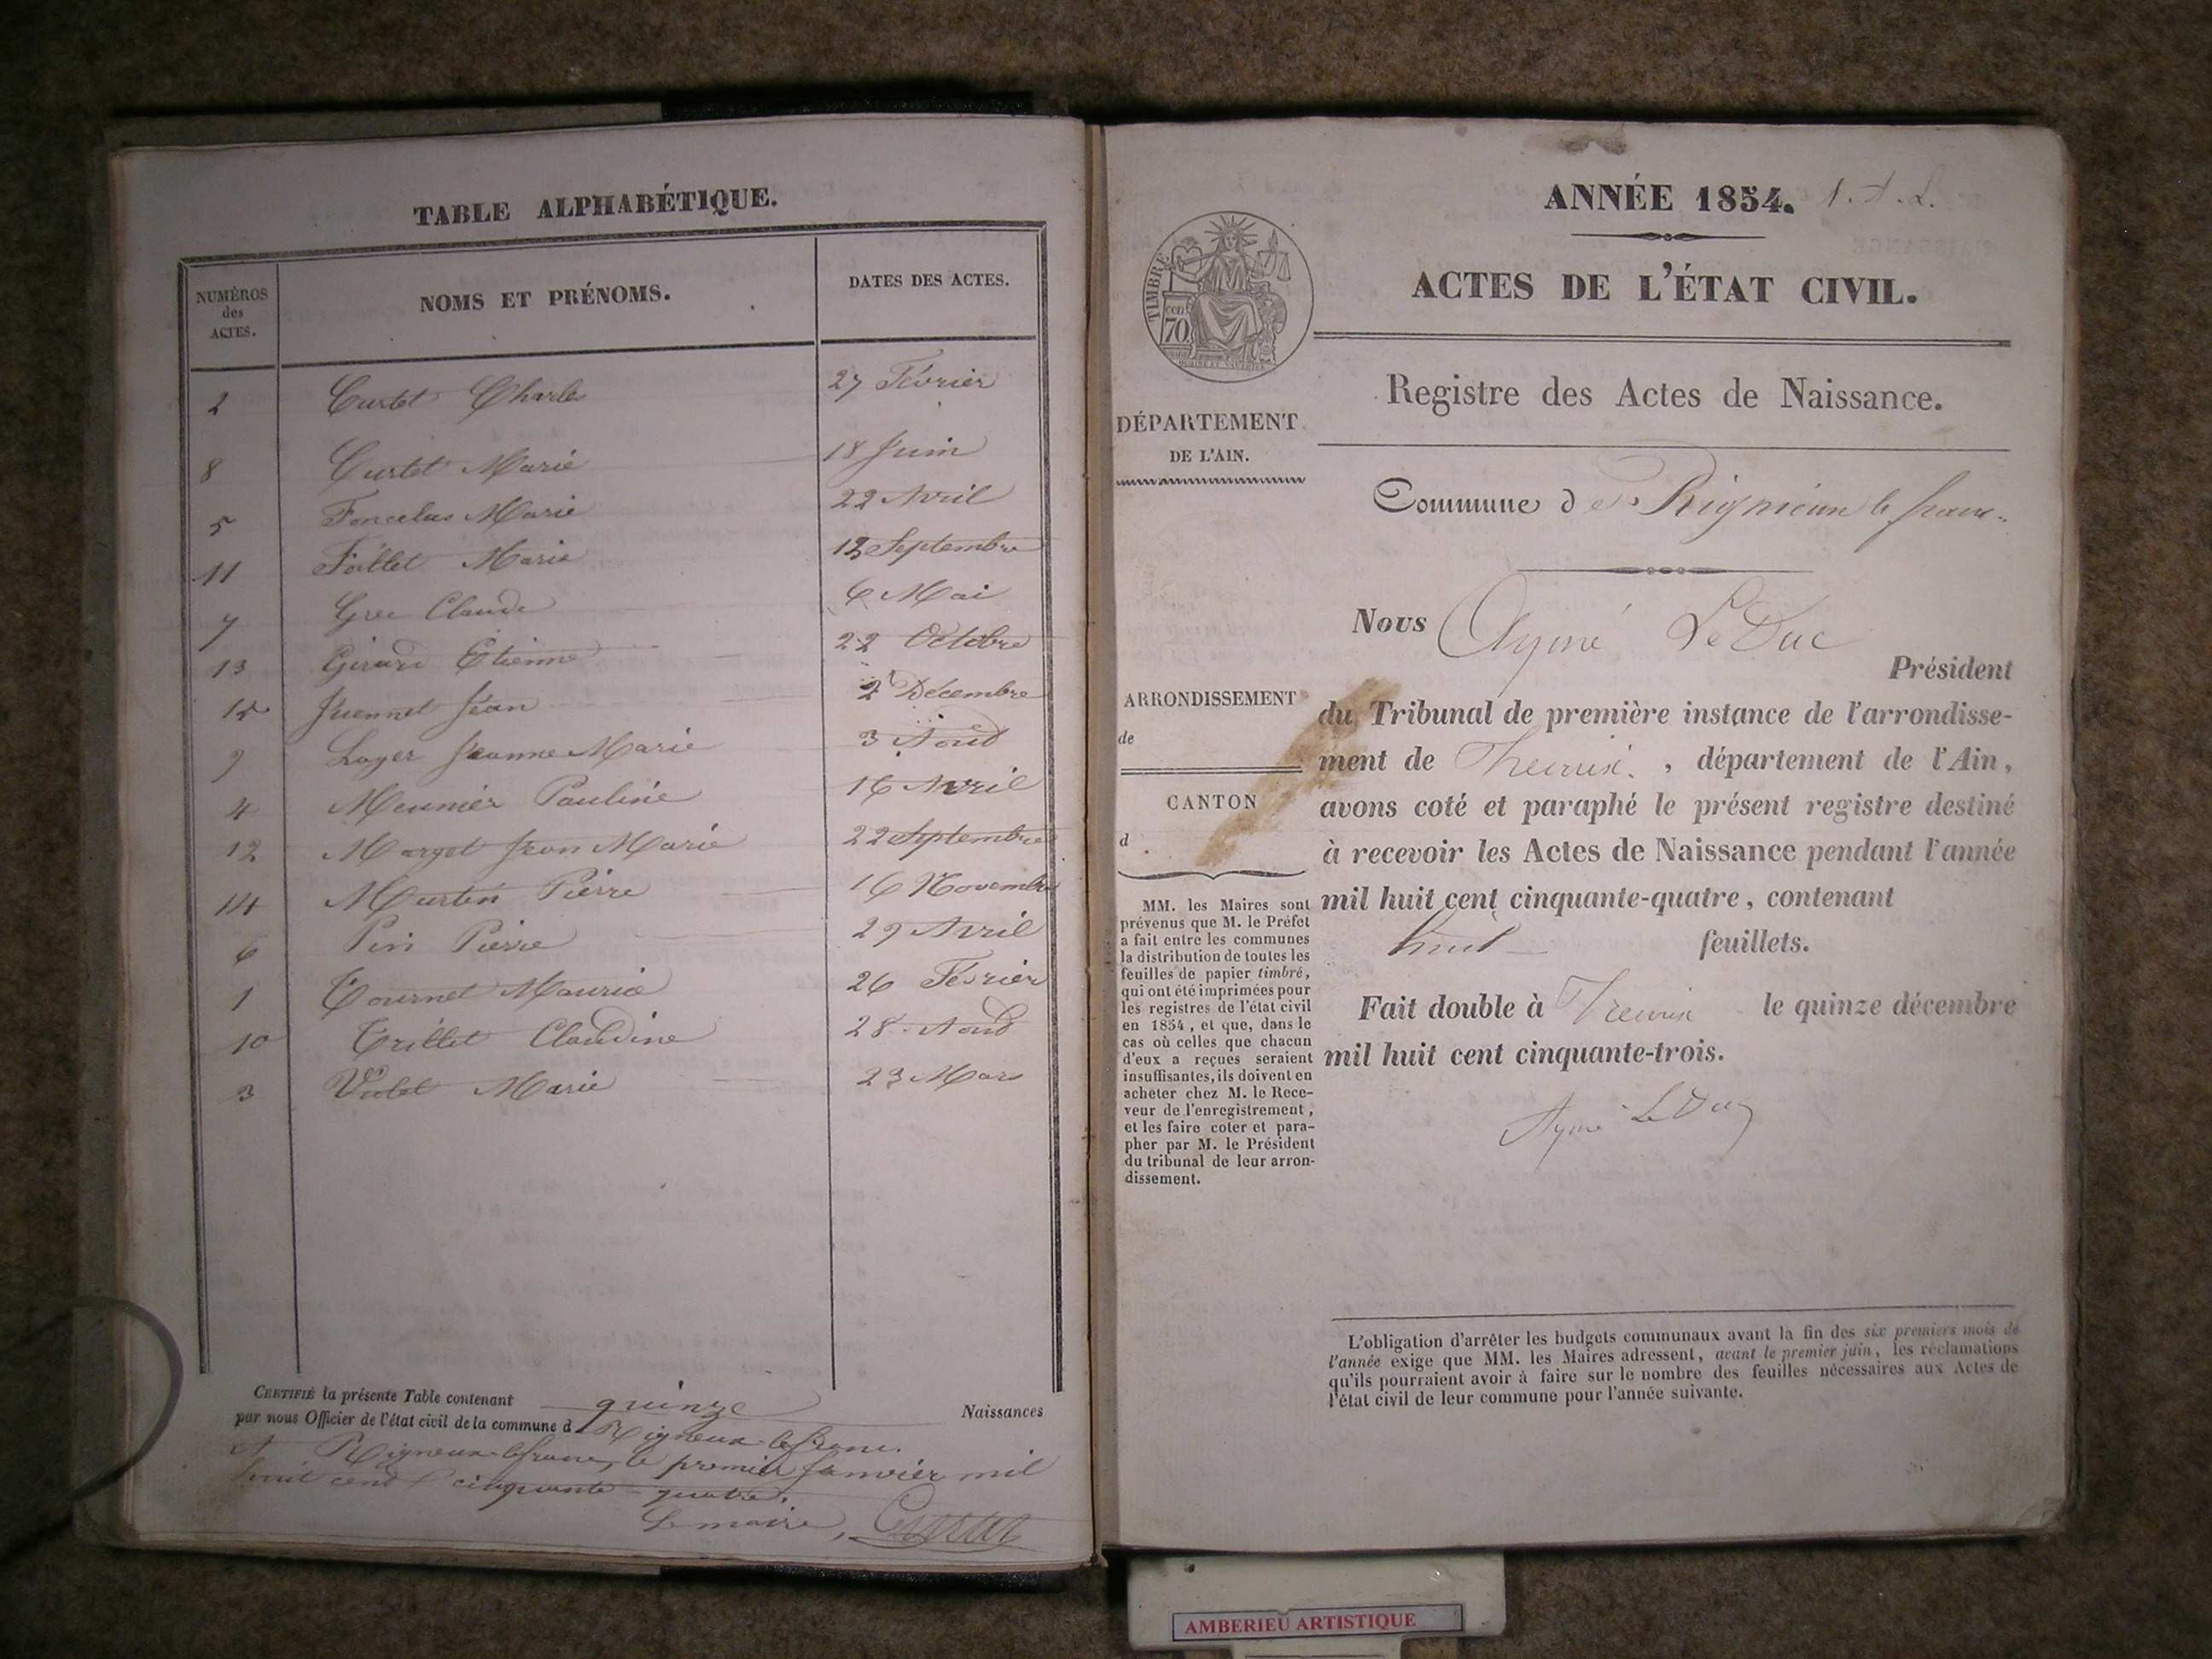 TABLE ALPHABÉTIQUE.
NUMÉROS des ACTES.
NOMS ET PRÉNOMS.
DATES DES ACTES.
2 Curtet Charles 27 Février
8 Curtet Marie 18 Juin
5 Marie 22 Avril
11 Marie 13 Septembre
7 Claude 6 Mai
13 Girard Etienne 22 Octobre
15 Juennet Jean 2 Décembre
9 Loyer Jeanne Marie 3 Aout
4 Meunier Pauline 16 Avril
12 Morget Jean Marie 22 Septembre
14 Murtin Pierre 16 Novembre
6 Pin Pierre 29 Avril
1 Tournet Maurice 26 Février
10 Trillet Claudine 28 Aout
3 Violet Marie 23 Mars
CERTIFIÉ la présente Table contenant quinze Naissances
par nous Officier de l'état civil de la commune d Rigneux-lefranc.
A Rigneux-lefranc, le premier Janvier mil
huit cent cinquante-quatre.
Le maire,
ANNÉE 1854.
ACTES DE L'ÉTAT CIVIL.
TIMBRE
cent
70
Registre des Actes de Naissance.
DÉPARTEMENT
DE L'AIN.
Commune de Rignieux le franc
Nous Aymé LeDuc
Président
ARRONDISSEMENT
de
CANTON
d
du Tribunal de première instance de l'arrondisse-
ment de Trevoux, département de l'Ain,
avons coté et paraphé le présent registre destiné
à recevoir les Actes de Naissance pendant l'année
mil huit cent cinquante-quatre, contenant
huit feuillets.
Fait double à Trevoux le quinze décembre
mil huit cent cinquante-trois.
Aymé LeDuc
MM. les Maires sont
prévenus que M. le Préfet
a fait entre les communes
la distribution de toutes les
feuilles de papier timbré,
qui ont été imprimées pour
les registres de l'état civil
en 1854, et que, dans le
cas où celles que chacun
d'eux a reçues seraient
insuffisantes, ils doivent en
acheter chez M. le Rece-
veur de l'enregistrement,
et les faire coter et para-
pher par M. le Président
du tribunal de leur arron-
dissement.
L'obligation d'arrêter les budgets communaux avant la fin des six premiers mois de
l'année exige que MM. les Maires adressent, avant le premier juin, les réclamations
qu'ils pourraient avoir à faire sur le nombre des feuilles nécessaires aux Actes de
l'état civil de leur commune pour l'année suivante.
AMBERIEU ARTISTIQUE